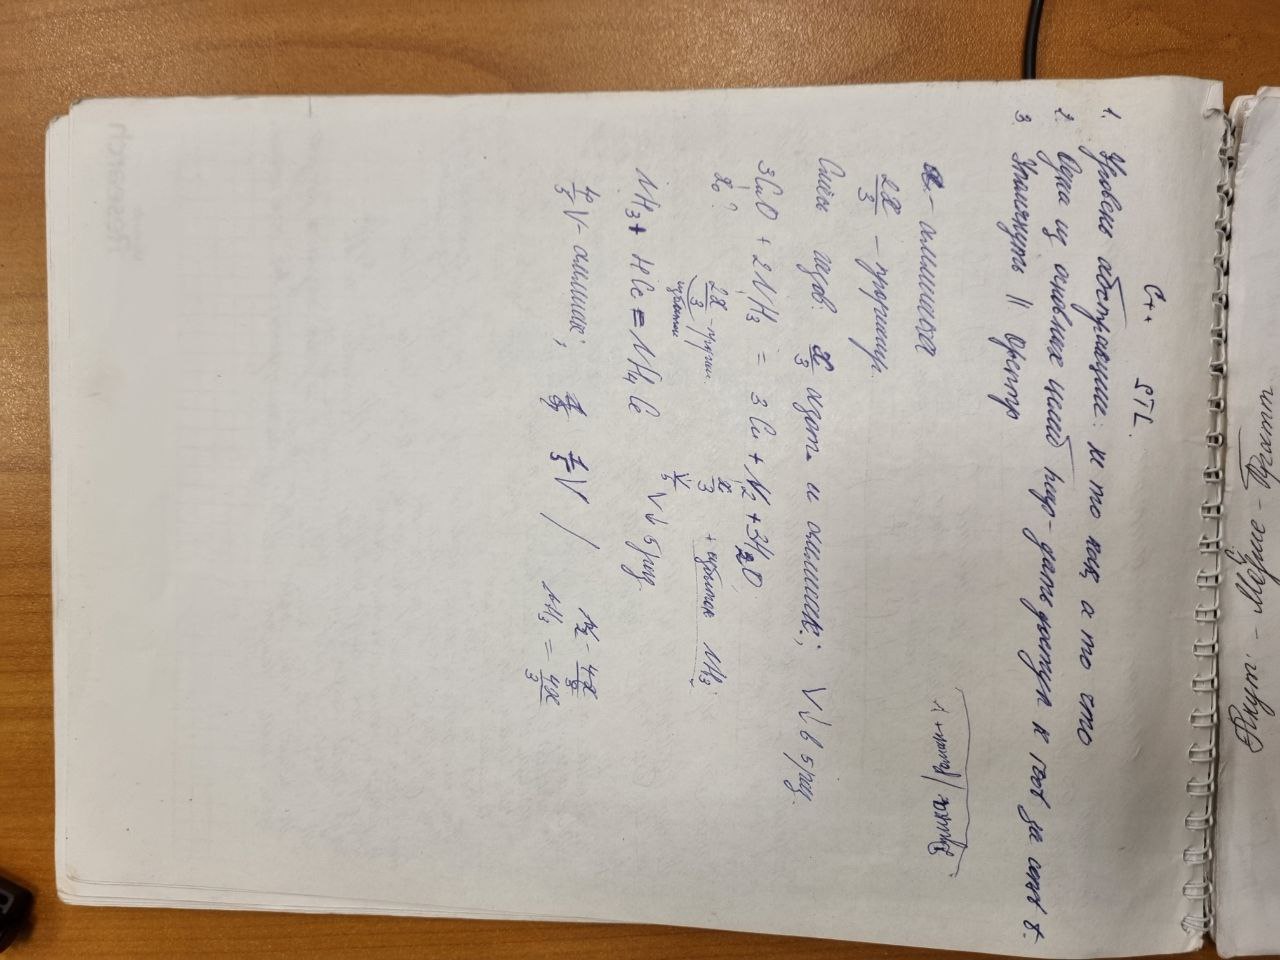 Якут. - Мебиус -
C++ STL.
1. Уровень абстракции: не то как, а то что
2. Одна из основных целей - дать доступ к за
3. Упомянуть ||
x - аммиака
2x/3 - прореагир.
Смесь газов: x/3 азот. и аммиак.; V↓ в 5 раз.
3CuO + 2NH3 = 3Cu + N2 + 3H2O
x0? 2x/3 - прореаг. x/3 + избыток NH3
избыток V/5 V↓ 5 раз.
NH3 + HCl = NH4Cl
4/5 V - аммиак; 1/5 V / N2 - 4x/3
NH3 = 4x/3
Research